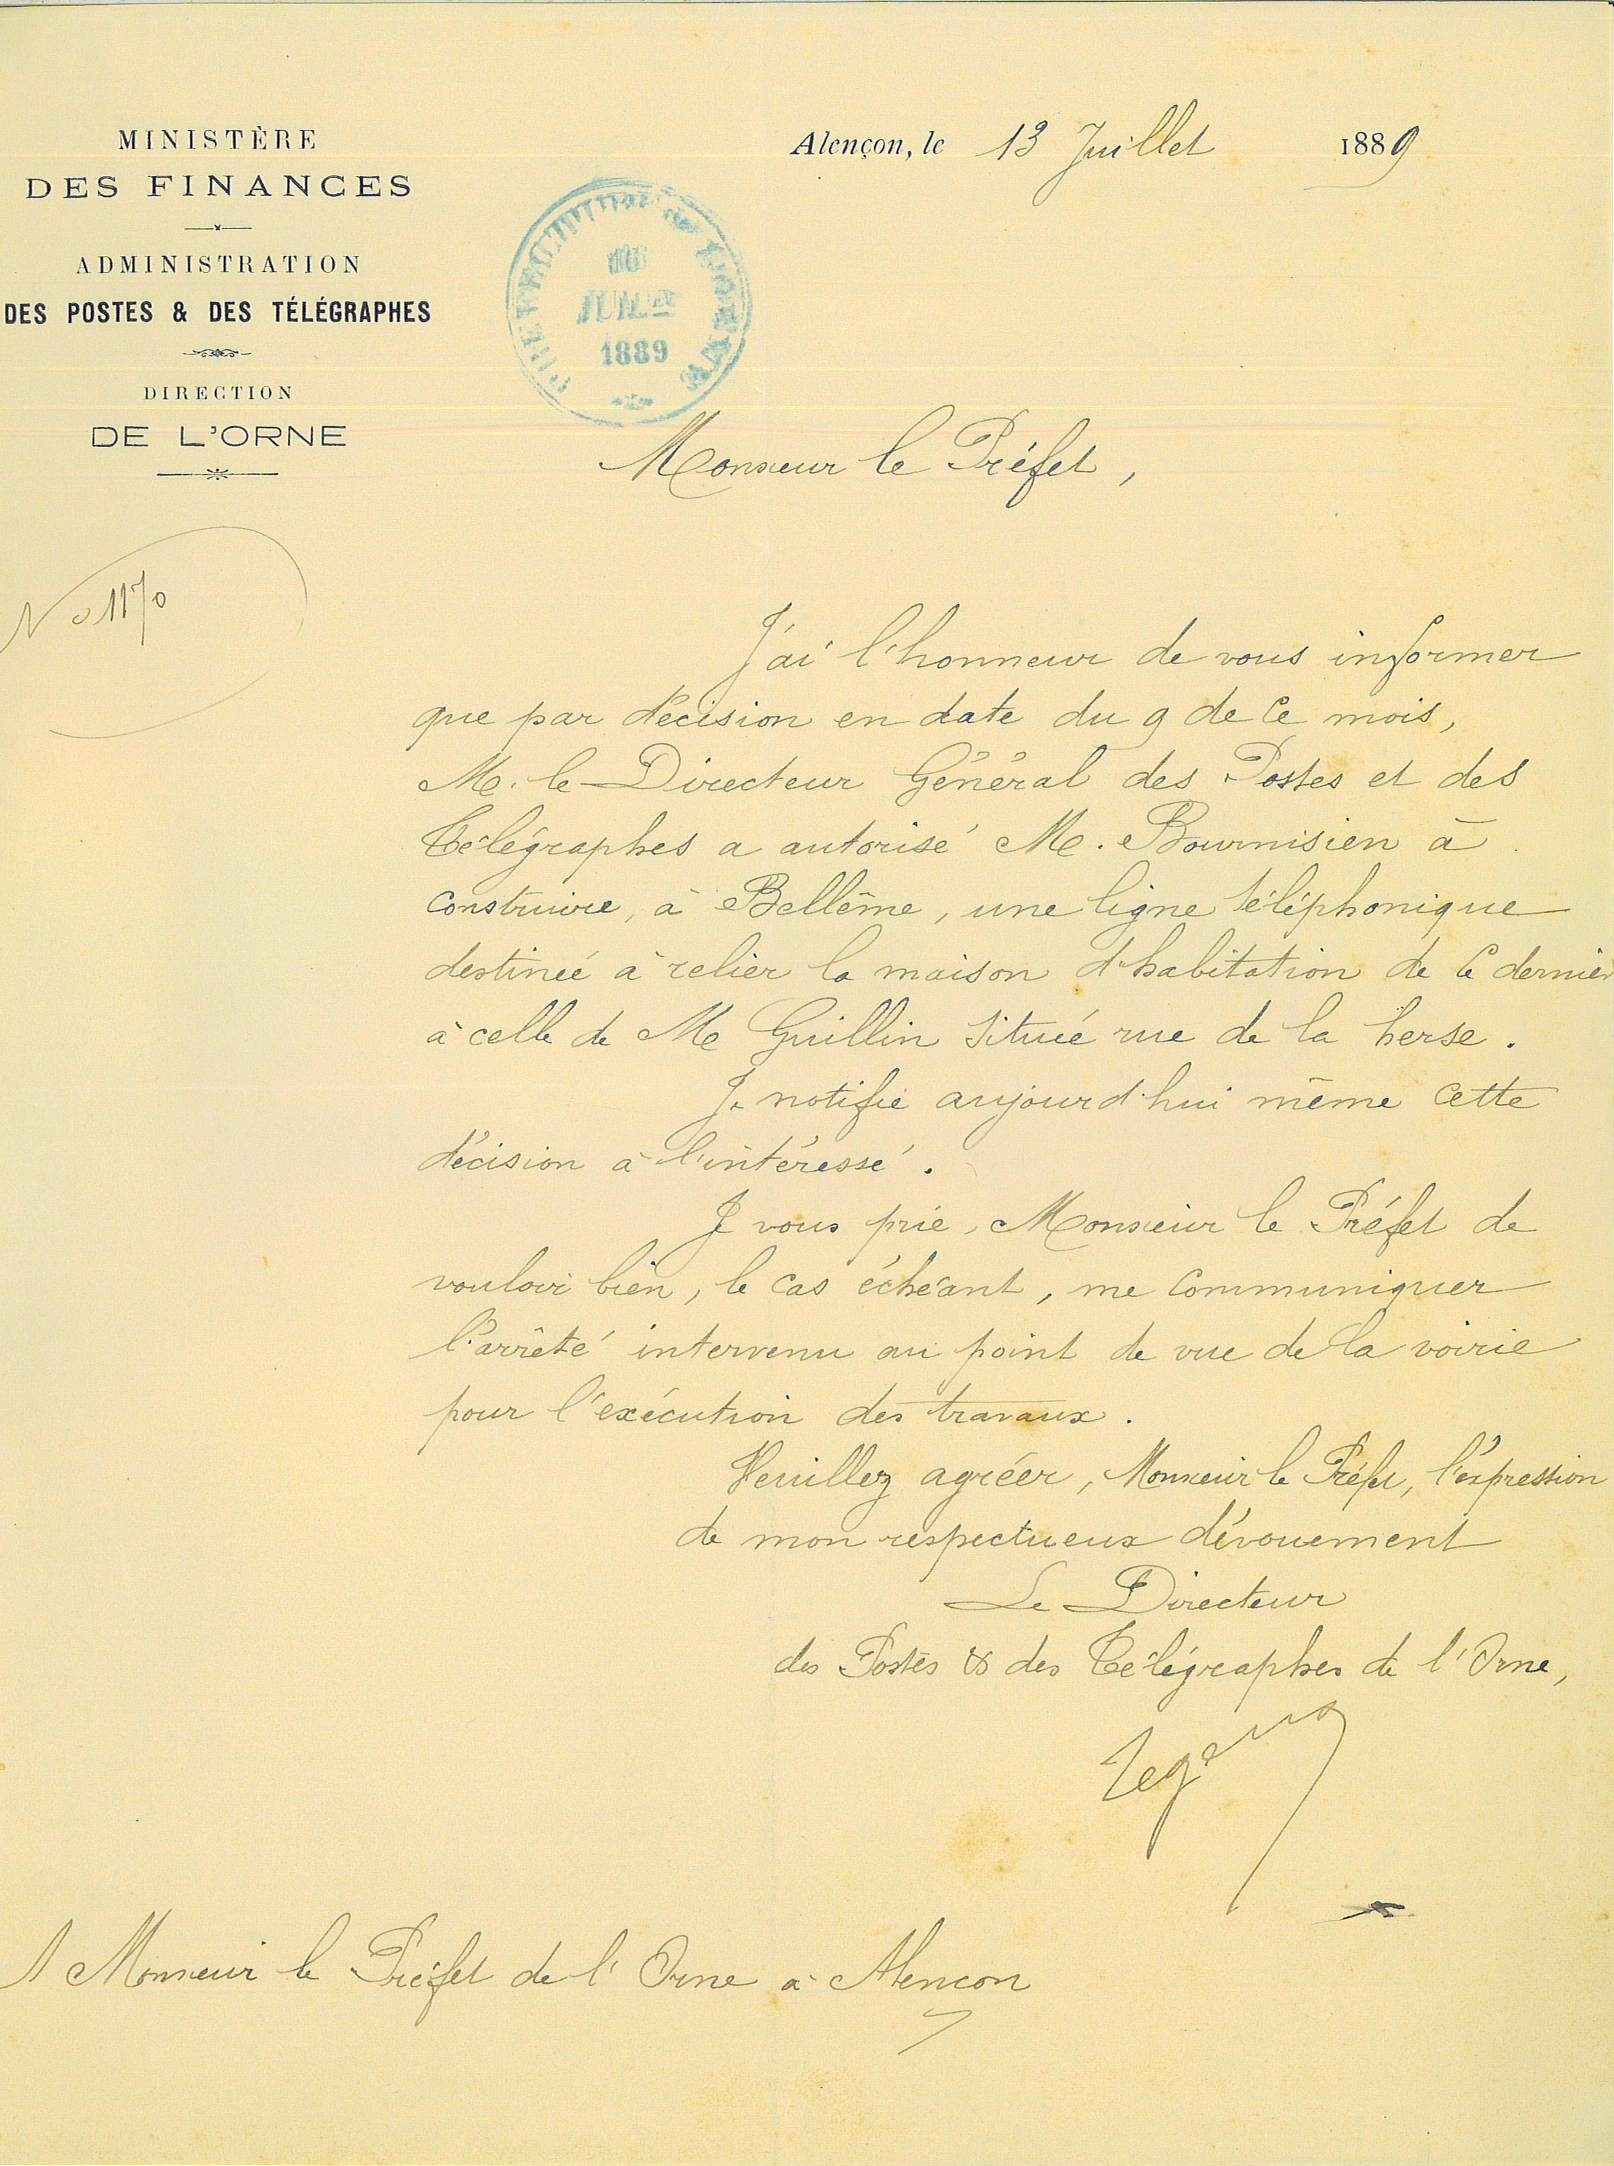 MINISTÈRE
DES FINANCES
ADMINISTRATION
DES POSTES & DES TÉLÉGRAPHES
DIRECTION
DE L'ORNE
Alençon, le 13 Juillet 1889
JUIL
1889
Monsieur le Préfet,
N° 1170
J'ai l'honneur de vous informer
que par décision en date du 9 de ce mois,
M. le Directeur Général des Postes et des
Télégraphes a autorisé M. Bournisien à
construire, à Bellême, une ligne téléphonique
destinée à relier la maison d'habitation de ce dernier
à celle de Me Guillin située rue de la herse.
Je notifie aujourd'hui même cette
décision à l'intéressé.
Je vous prie, Monsieur le Préfet de
vouloir bien, le cas échéant, me communiquer
l'arrêté intervenu au point de vue de la voirie
pour l'exécution des travaux.
Veuillez agréer, Monsieur le Préfet, l'expression
de mon respectueux dévouement
Le Directeur
des Postes & des Télégraphes de l'Orne,
A Monsieur le Préfet de l'Orne à Alençon